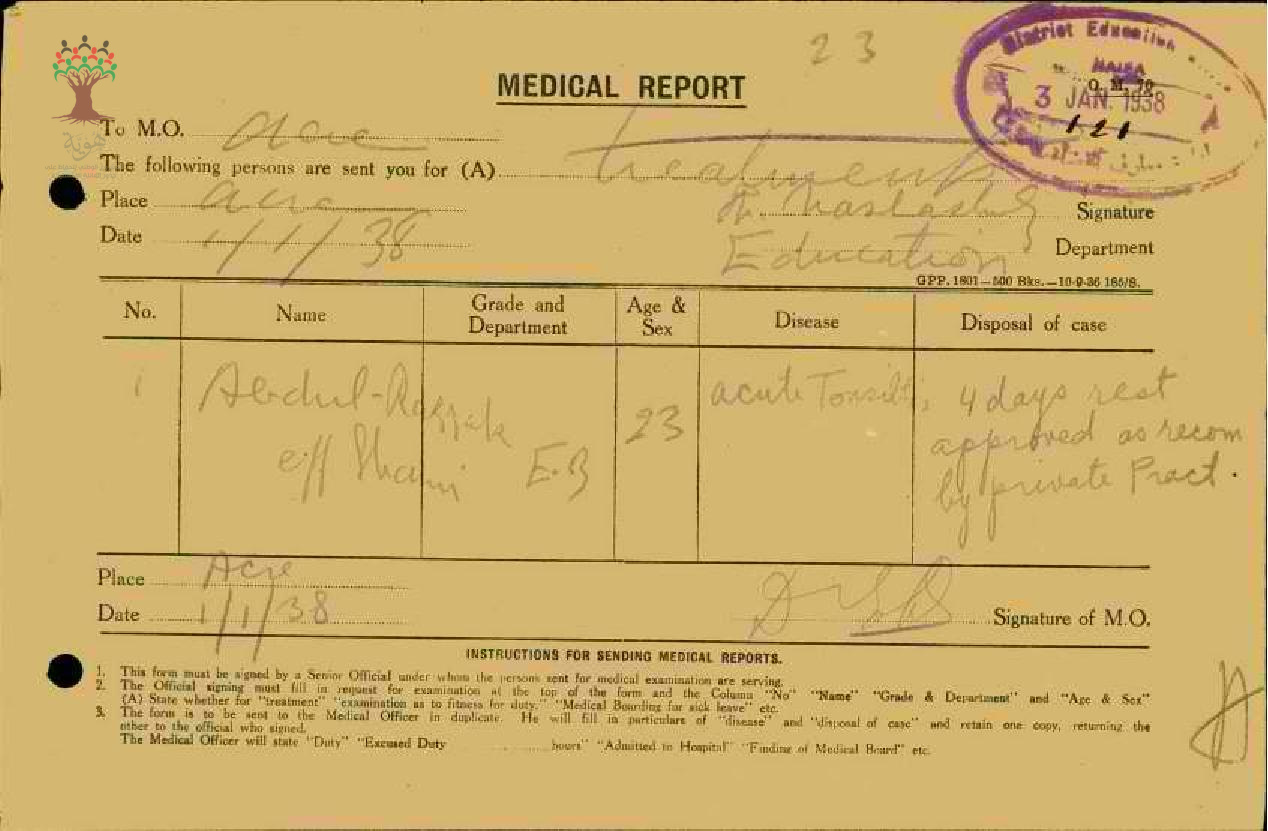 23
District Education
HAIFA
Q. M. 79
3 JAN. 1938
121
MEDICAL REPORT
هوية
To M.O. Acre
The following persons are sent you for (A) treatment
Place Acre Signature
Date 1/1/38 Education Department
GPP. 1801—500 Bks.—10-9-36 165/S.
No. Name Grade and Department Age & Sex Disease Disposal of case
1 Abdul-Razzak 23 acute Tonsilitis 4 days rest
eff Shami E.B approved as recom
by private Pract.
Place Acre
Date 1/1/38 Signature of M.O.
INSTRUCTIONS FOR SENDING MEDICAL REPORTS.
1. This form must be signed by a Senior Official under whom the persons sent for medical examination are serving.
2. The Official signing must fill in request for examination at the top of the form and the Column "No" "Name" "Grade & Department" and "Age & Sex"
(A) State whether for "treatment" "examination as to fitness for duty," "Medical Boarding for sick leave" etc.
3. The form is to be sent to the Medical Officer in duplicate. He will fill in particulars of "disease" and "disposal of case" and retain one copy, returning the
other to the official who signed.
The Medical Officer will state "Duty" "Excused Duty ............ hours" "Admitted to Hospital" "Finding of Medical Board" etc.